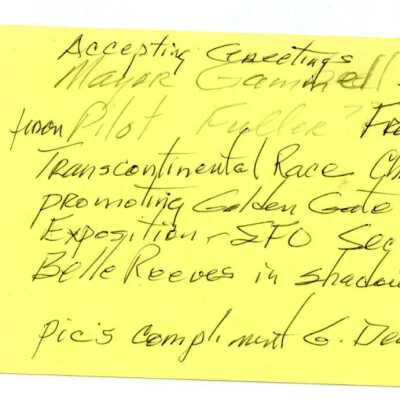 Accepting Greetings
Mayor Gammell
from Pilot Fuller ?? Fr
Transcontinental Race Ch
promoting Golden Gate
Exposition - SFO Seq
Belle Reeves in shado
pic's compliment G. De